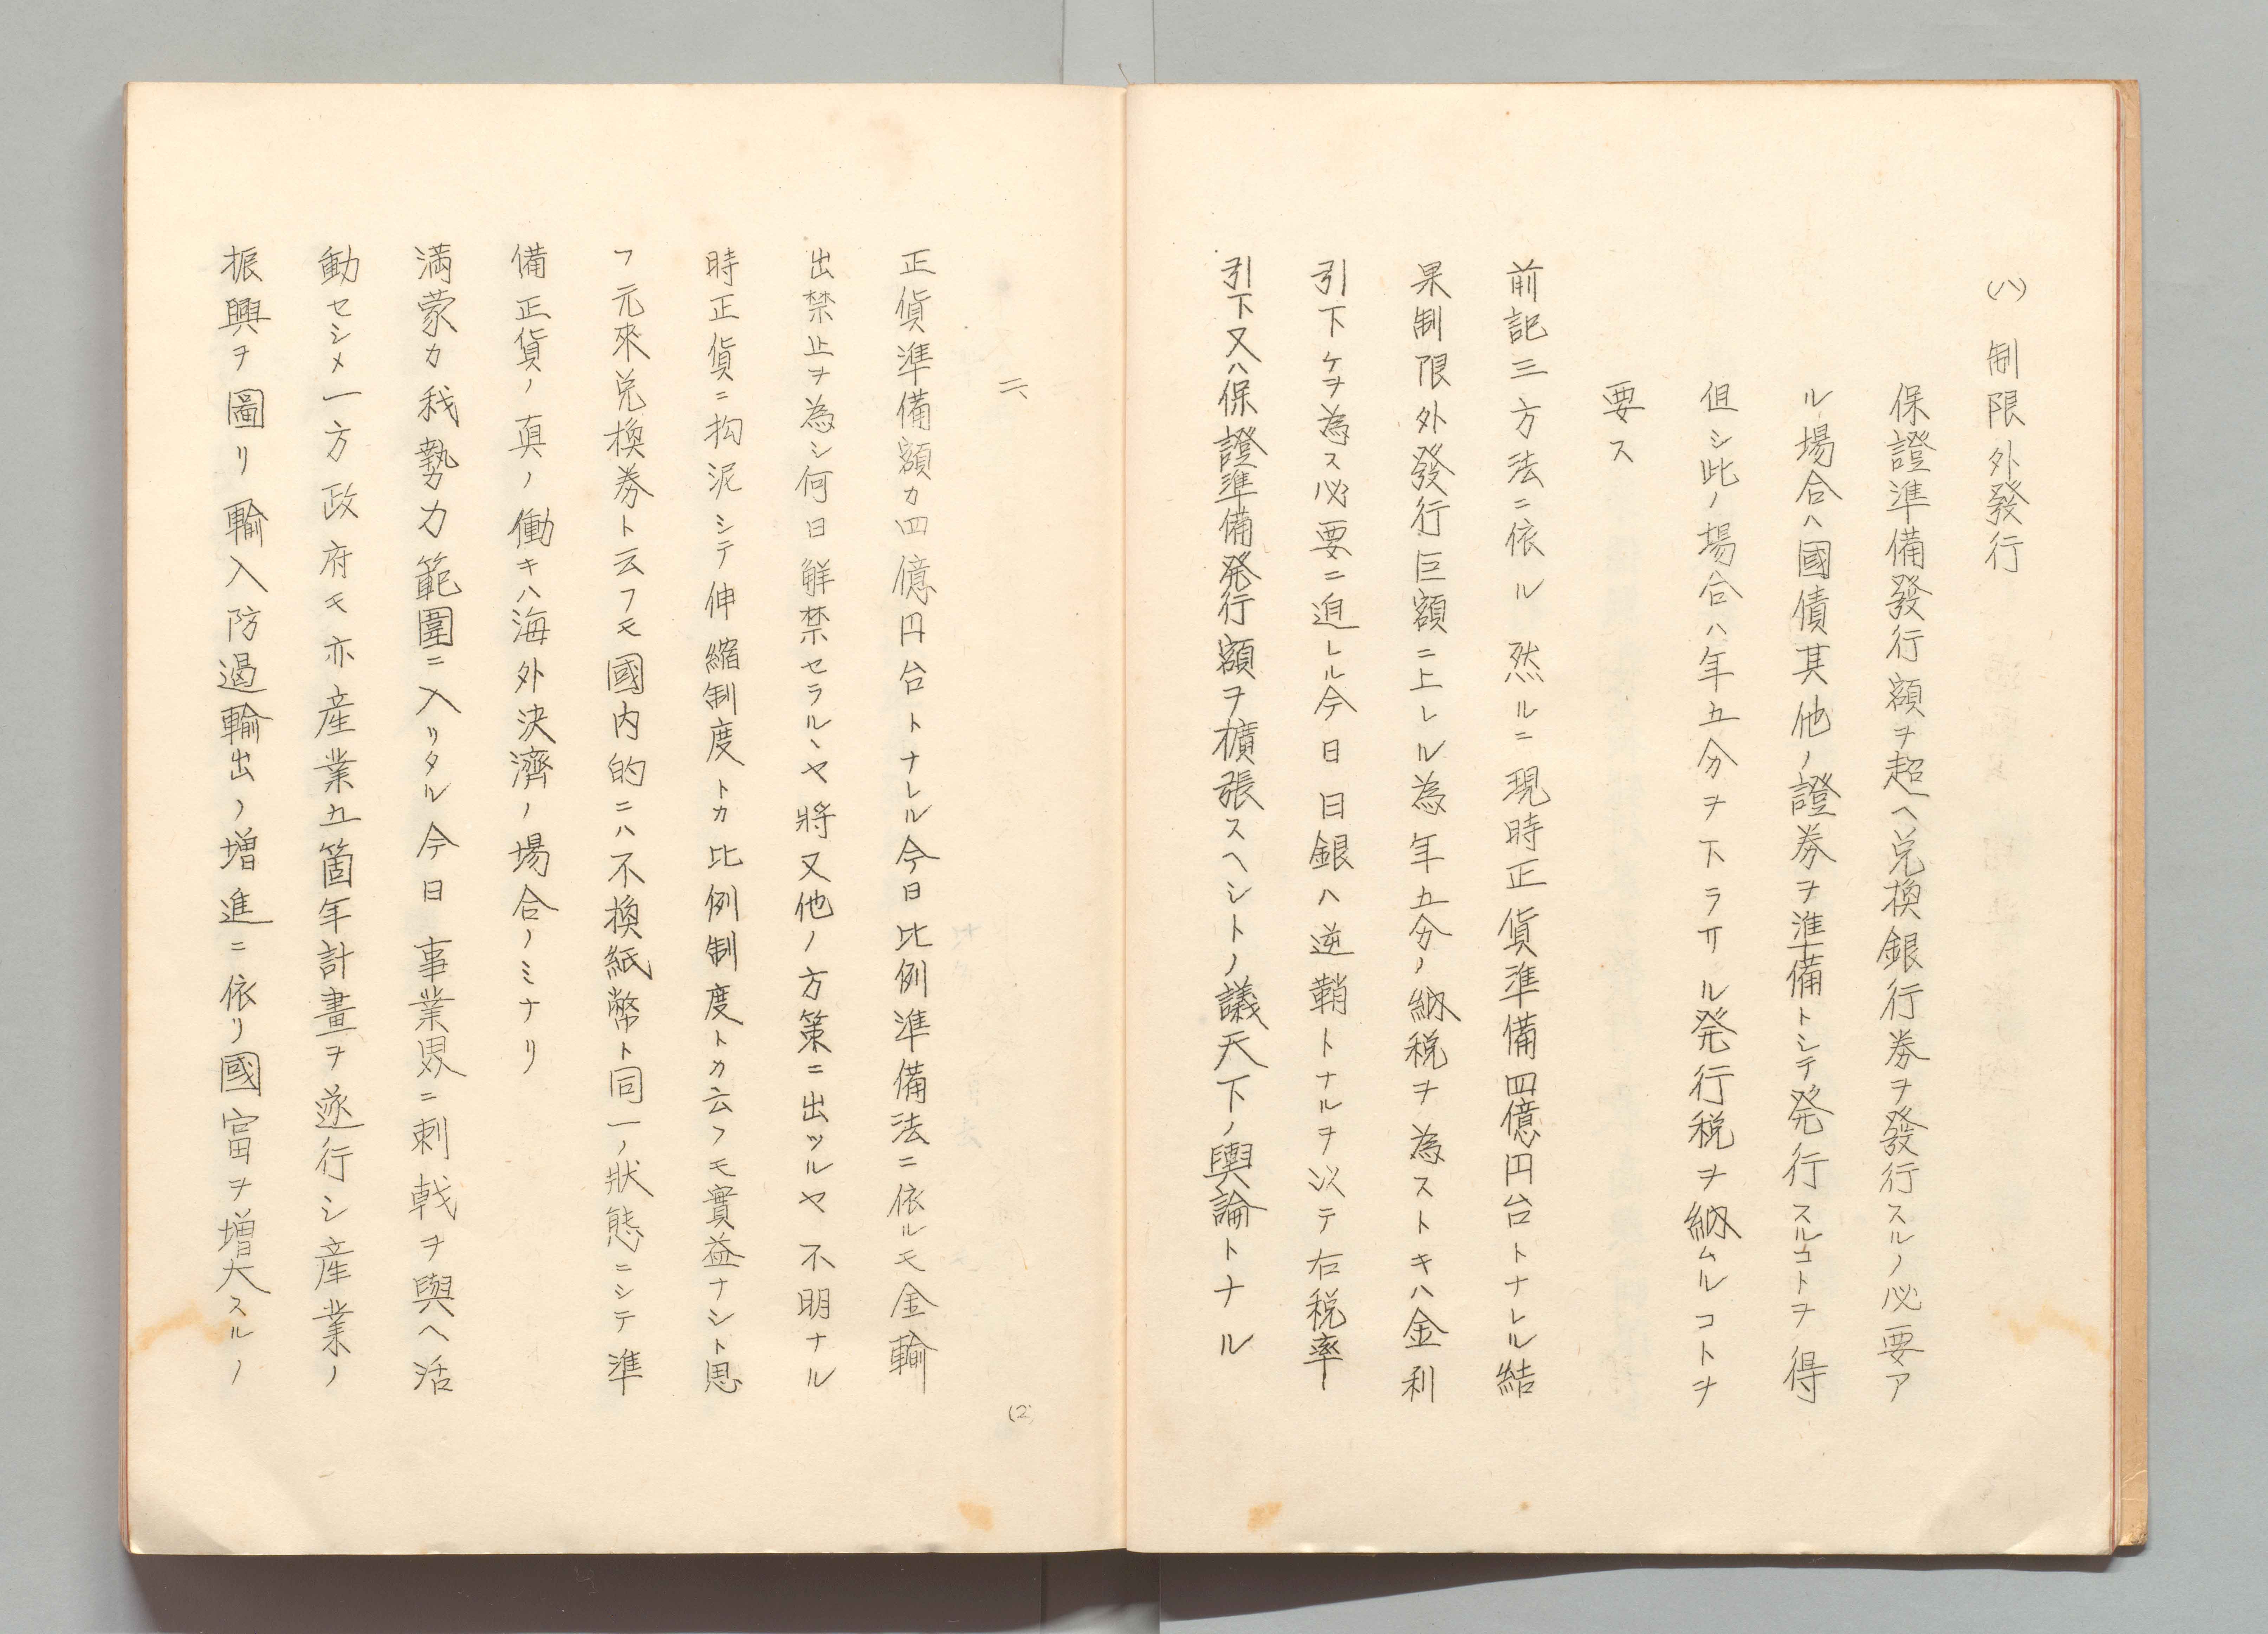 (ハ) 制限外發行
保證準備發行額ヲ超ヘ兌換銀行劵ヲ發行スルノ必要ア
ル場合ハ國債其他ノ證劵ヲ準備トシテ発行スルコトヲ得
但シ此ノ場合ハ年五分ヲ下ラサル発行税ヲ納ムルコトヲ
要ス
前記三方法ニ依ル 然ルニ現時正貨準備四億円台トナレル結
果制限外發行巨額ニ上レル為年五分ノ納税ヲ為ストキハ金利
引下ケヲ為ス必要ニ迫レル今日日銀ハ逆鞘トナルヲ以テ右税率
引下又ハ保證準備発行額ヲ擴張スヘシトノ議天下ノ輿論トナル
二、
正貨準備額カ四億円台トナレル今日比例準備法ニ依ルモ金輸
出禁止ヲ為シ何日解禁セラルヽヤ將又他ノ方策ニ出ツルヤ不明ナル
時正貨ニ拘泥シテ伸縮制度トカ比例制度トカ云フモ實益ナシト思
フ元來兌換劵ト云フモ國内的ニハ不換紙幣ト同一ノ狀態ニシテ準
備正貨ノ真ノ働キハ海外決濟ノ場合ノミナリ
満蒙カ我勢力範圍ニ入リタル今日事業界ニ刺戟ヲ與ヘ活
動セシメ一方政府モ亦産業五箇年計畫ヲ遂行シ産業ノ
振興ヲ圖リ輸入防遏輸出ノ増進ニ依リ國富ヲ増大スルノ
(2)